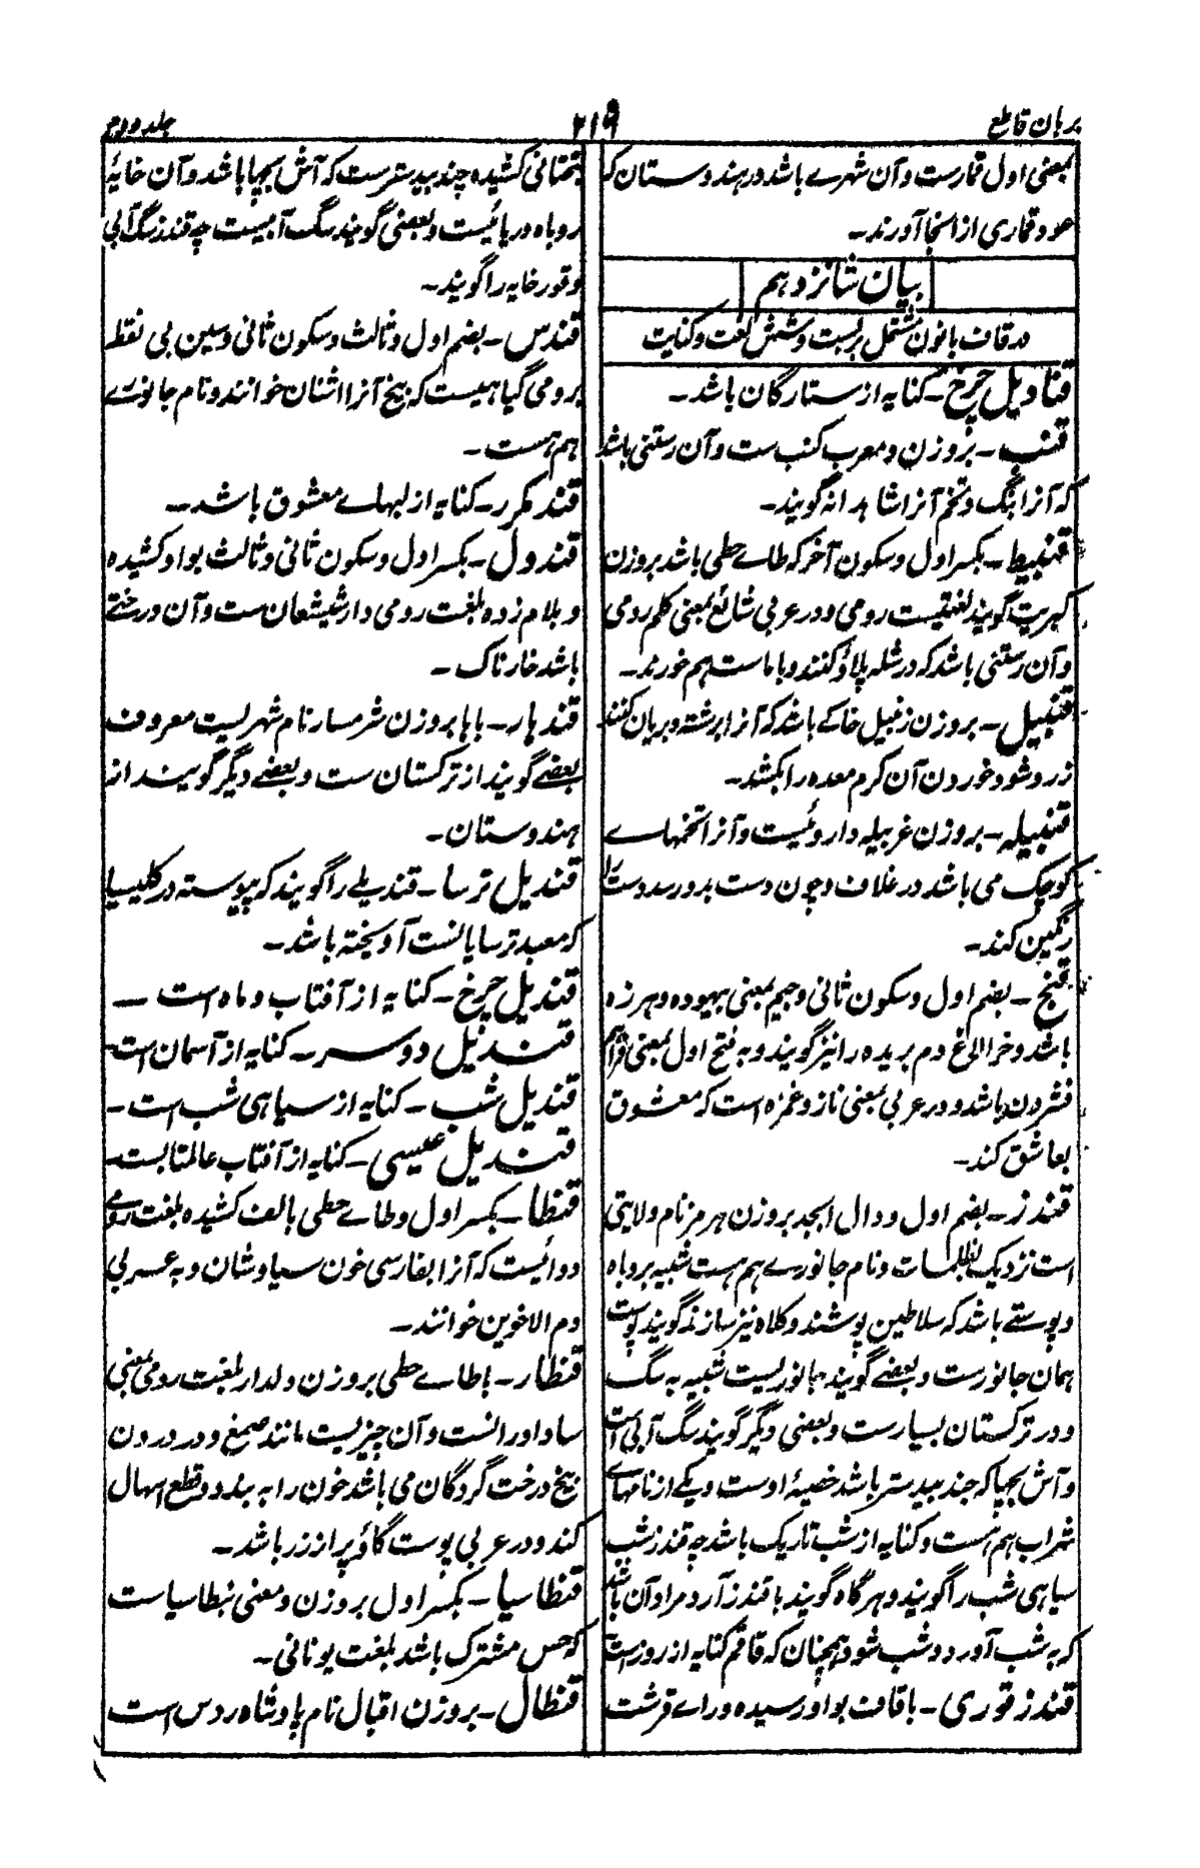 برہان قاطع
۲۱۹
جلد دوم
بمعنی اول قمارست و آن شہرے باشد در ہندوستان کہ
عود قماری از آنجا آورند۔
بیان شانزدہم
در قاف بانون مشتمل بر بیست و شش لغت و کنایت
قنادیل چرخ۔ کنایہ از ستارگان باشد۔
قنب۔ بروزن و معرب کنب ست و آن رستنی باشد
کہ آنرا بنگ و تخم آنرا شاہدانہ گویند۔
قنبیط۔ بکسر اول و سکون آخر کہ طاے حطی باشد بروزن
کبریت گویند لغتیست رومی و در عربی شائع بمعنی کلم رومی
و آن رستنی باشد کہ در شلہ پلاؤ کنند و با ماست ہم خورند۔
قنبیل۔ بروزن زنبیل خاکے باشد کہ آنرا برشتہ و بریان کنند
زرد شود خوردن آن کرم معدہ را بکشد۔
قنبیلہ۔ بروزن غربیلہ داروئیست و آنرا تخمہاے
کوچک می باشد در غلاف و چون دست برو رسد دست را
رنگین کند۔
قنج۔ بضم اول و سکون ثانی و جیم بمعنی بیہودہ و ہرزہ
باشد و خر الاغ دم بریدہ را نیز گویند و بہ فتح اول بمعنی فراہم
فشردن باشد و در عربی بمعنی ناز و غمزہ است کہ معشوق
بعاشق کند۔
قندز۔ بضم اول و دال ابجد بروزن ہرمز نام ولایتی
است نزدیک بظلمات و نام جانورے ہم ہست شبیہ بروباہ
و پوستے باشد کہ سلاطین پوشند و کلاہ نیز سازند گویند پوست
ہمان جانورست و بعضے گویند جانوریست شبیہ بہ سگ
و در ترکستان بسیارست و بعضی دیگر گویند سگ آبی است
و آش بچہا کہ جند بیدستر باشد خصیۂ اوست و یکے از نامہاے
شراب ہم ہست و کنایہ از شب تاریک باشد چہ قندز شب
سیاہی شب را گویند و ہرگاہ گویند با قندز آرد مراد آن باشد
کہ بہ شب آورد و شب شود ہمچنان کہ قاقم کنایہ از روزست
قندز قوری۔ با قاف بواو رسیدہ و راے قرشت
بتحتانی کشیدہ جند بیدسترست کہ آش بچہا باشد و آن خایۂ
روباہ دریائیست و بعضی گویند سگ آبیست چہ قندز سگ آبی
و قور خایہ را گویند۔
قندس۔ بضم اول و ثالث و سکون ثانی و سین بی نقطہ
برومی گیاہیست کہ بیخ آنرا اشنان خوانند و نام جانورے
ہم ہست۔
قند مکرر۔ کنایہ از لبہاے معشوق باشد۔
قندول۔ بکسر اول و سکون ثانی و ثالث بواو کشیدہ
و بلام زدہ بلغت رومی دارشیشعان ست و آن درختے
باشد خارناک۔
قندہار۔ با ہا بروزن شرمسار نام شہریست معروف
بعضے گویند از ترکستان ست و بعضے دیگر گویند از
ہندوستان۔
قندیل ترسا۔ قندیلے را گویند کہ پیوستہ در کلیسیا
کہ معبد ترسایانست آویختہ باشد۔
قندیل چرخ۔ کنایہ از آفتاب و ماہ است۔
قندیل دوسر۔ کنایہ از آسمان است
قندیل شب۔ کنایہ از سیاہی شب است۔
قندیل عیسی۔ کنایہ از آفتاب عالمتاب ست۔
قنطا۔ بکسر اول و طاے حطی بالف کشیدہ بلغت رومے
دوائیست کہ آنرا بفارسی خون سیاوشان و بہ عربی
دم الاخوین خوانند۔
قنطار۔ با طاے حطی بروزن دلدار بلغت رومی بمعنی
ساداورانست و آن چیزیست مانند صمغ و در درون
بیخ درخت گردگان می باشد خون را بہ بندد و قطع اسہال
کند و در عربی پوست گاؤ پر از زر باشد۔
قنطاسیا۔ بکسر اول بروزن و معنی نبطاسیاست
کہ حس مشترک باشد بلغت یونانی۔
قنطال۔ بروزن اقبال نام پادشاہ روس است